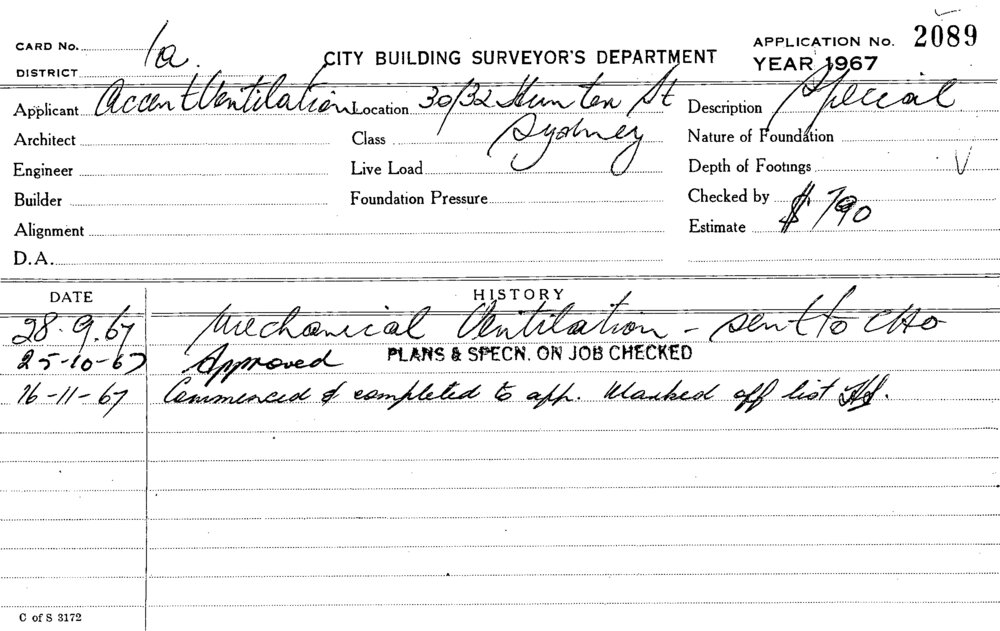 CARD No. 1a. CITY BUILDING SURVEYOR'S DEPARTMENT APPLICATION No. 2089
DISTRICT YEAR 1967
Applicant Accent Ventilation Location 30/32 Hunter St Description Special
Architect Class Sydney Nature of Foundation
Engineer Live Load Depth of Footings
Builder Foundation Pressure Checked by
Alignment Estimate $790
D.A.
DATE HISTORY
28.9.67 Mechanical Ventilation - sent to CHO
25-10-67 Approved PLANS & SPECN. ON JOB CHECKED
16-11-67 Commenced & completed to app. Marked off list
C of S 3172